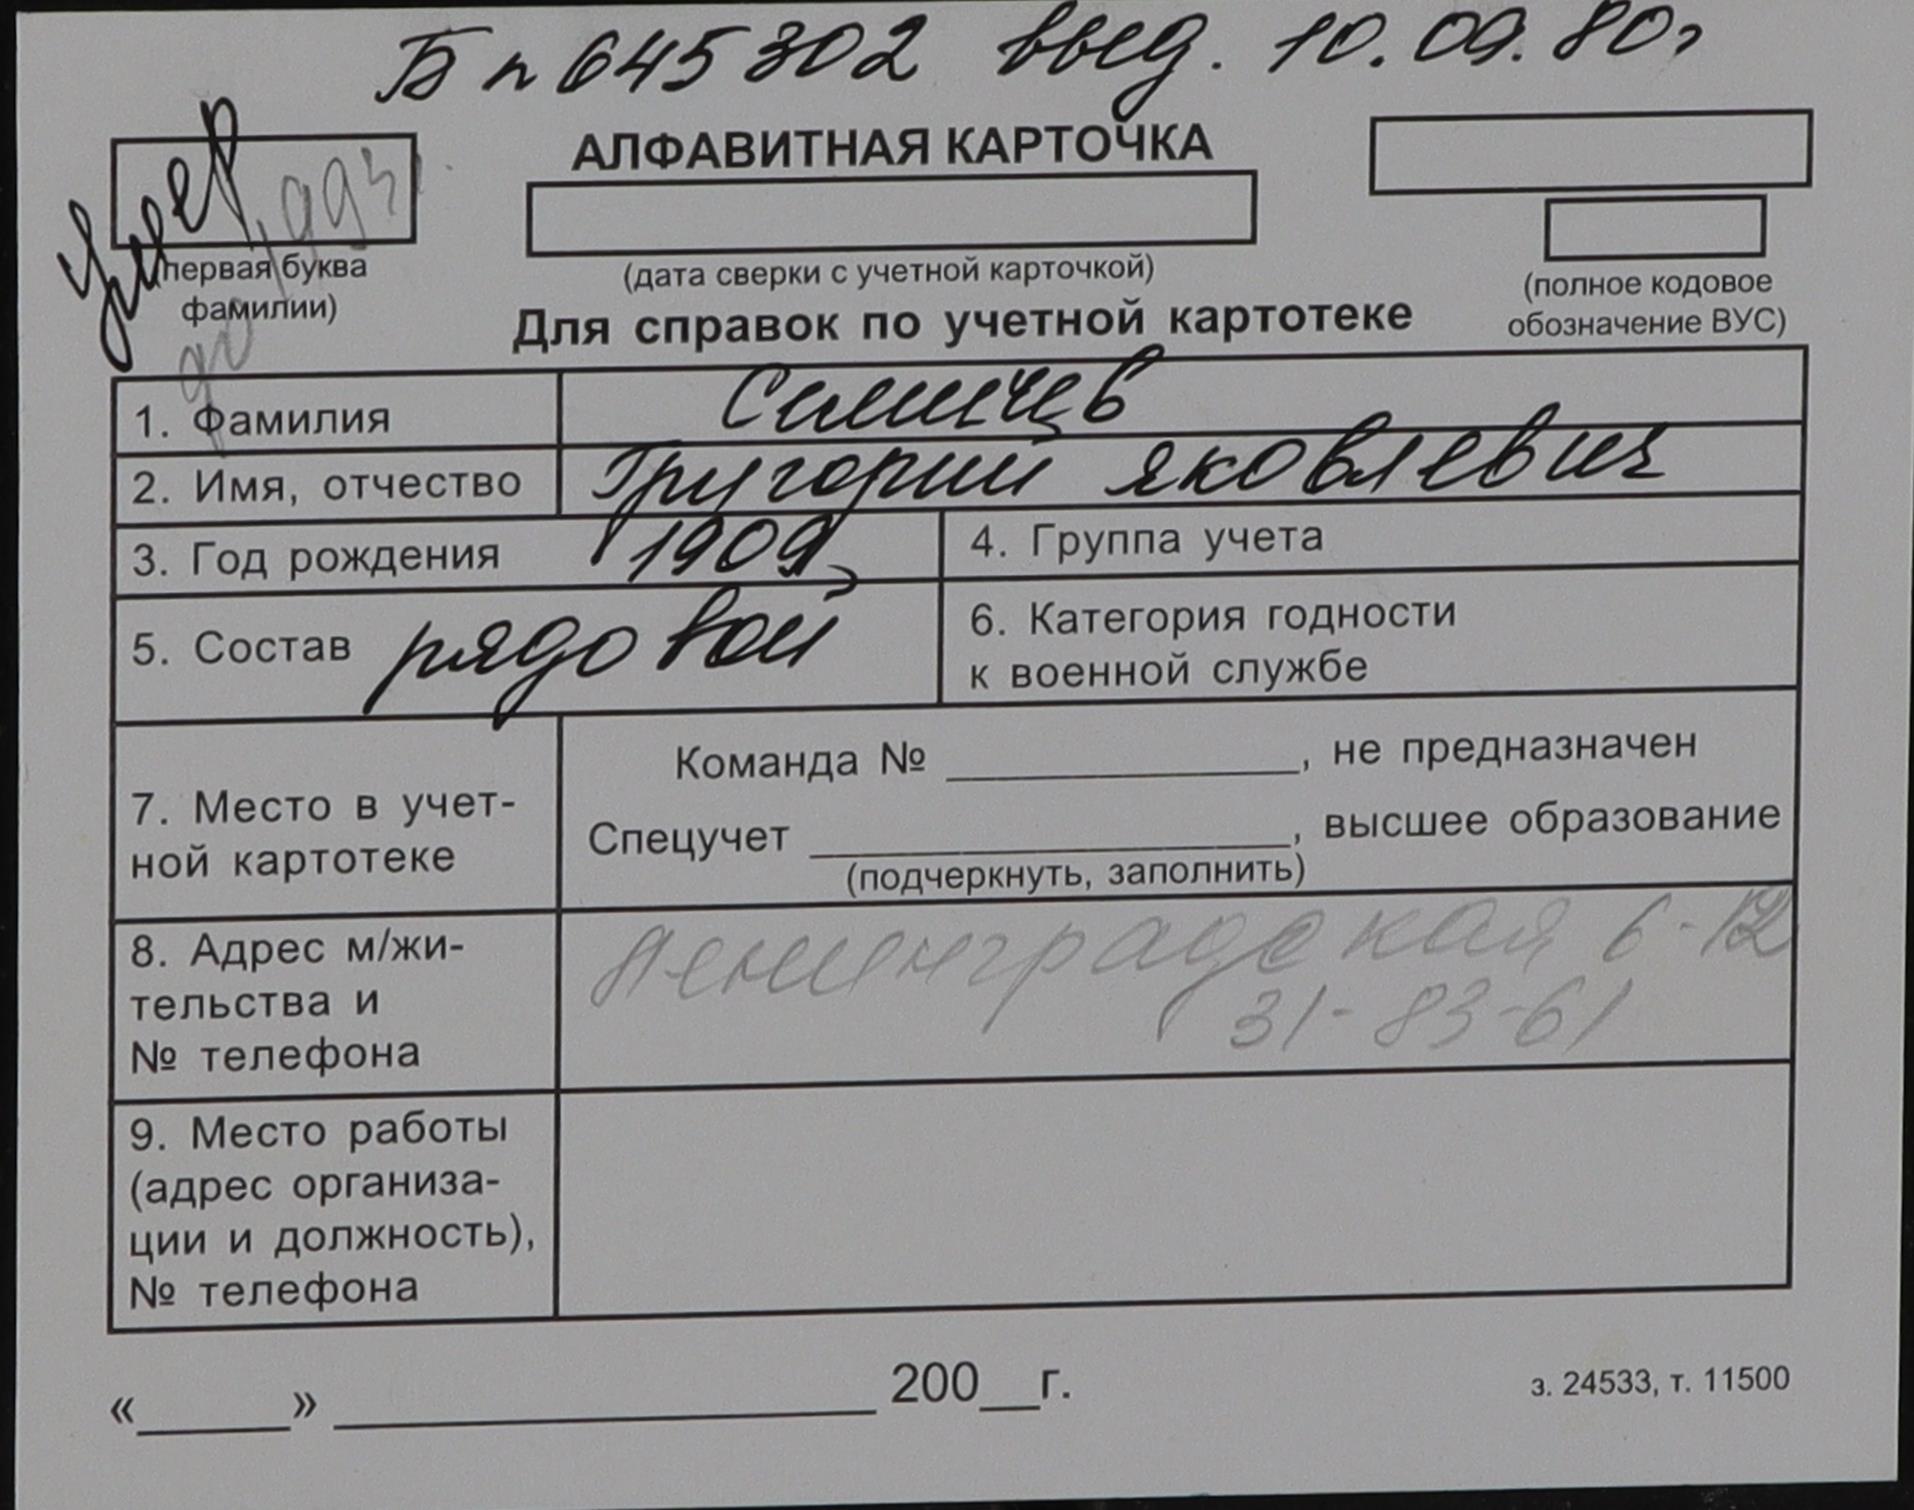 Б п 645302 введ. 10.09.80г
Умер
до 1993г.
АЛФАВИТНАЯ КАРТОЧКА
(первая буква
фамилии)
(дата сверки с учетной карточкой)
(полное кодовое
обозначение ВУС)
Для справок по учетной картотеке
1. Фамилия
2. Имя, отчество Григорий Яковлевич
3. Год рождения 1909
4. Группа учета
5. Состав рядовой
6. Категория годности
к военной службе
7. Место в учет-
ной картотеке
Команда № ____________, не предназначен
Спецучет ____________, высшее образование
(подчеркнуть, заполнить)
8. Адрес м/жи-
тельства и
№ телефона
Ленинградская 6-12
31-83-61
9. Место работы
(адрес организа-
ции и должность),
№ телефона
«_____» ____________ 200__г.
з. 24533, т. 11500